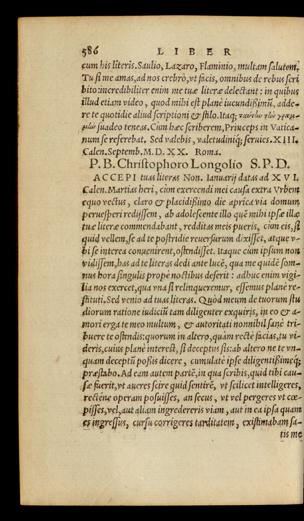 586 LIBER
cum his literis. Saulio, Lazaro, Flaminio, multam salutem.
Tu si me amas, ad nos crebrò, vt facis, omnibus de rebus scri
bito: incredibiliter enim me tuæ literæ delectant: in quibus
illud etiam video, quod mihi est planè iucundißimũ, adde-
re te quotidie aliud scriptioni & stilo. Itaq;
suadeo teneas. Cum hæc scriberem, Princeps in Vatica-
num se referebat. Sed valebis, valetudiniq; seruies. XIII.
Calen. Septemb. M. D. XX. Roma.
P. B. Christophoro Longolio S. P. D.
ACCEPI tuas literas Non. Ianuarij datas ad XVI.
Calen. Martias heri, cum exercendi mei causa extra Vrbem
equo vectus, claro & placidißimo die aprica via domum
peruesperi redissem, ab adolescente illo quẽ mihi ipsæ illæ
tuæ literæ commendabant, redditas meis pueris, cum eis, si
quid vellem, se ad te postridie reuersurum dixisset, atque v-
bi se interea conuenirent, ostendisset. Itaque cum ipsum non
vidissem, has ad te literas dedi ante lucẽ, qua me quidẽ som-
nus hora singulis propè noctibus deserit: adhuc enim vigi-
lia nos exercet, qua vna si relinqueremur, essemus planè re-
stituti. Sed venio ad tuas literas. Quòd meum de tuorum stu
diorum ratione iudiciũ tam diligenter exquiris, in eo & a-
mori erga te meo multum, & autoritati nonnihil sanè tri-
buere te ostendis: quorum in altero, quàm rectè facias, tu vi-
deris, cuius planè interest, si deceptus sis: ab altero ne te vn-
quam deceptũ poßis dicere, cumulatè ipse diligentißimeq;
præstabo. Ad eam autem partẽ, in qua scribis, quid tibi cau-
sæ fuerit, vt aueres scire quid sentirẽ, vt scilicet intelligeres,
rectène operam posuisses, an secus, vt vel pergeres vt cœ-
pisses, vel, aut aliam ingredereris viam, aut in ea ipsa quam
es ingressus, cursu corrigeres tarditatem, existimabam sa-
tis me